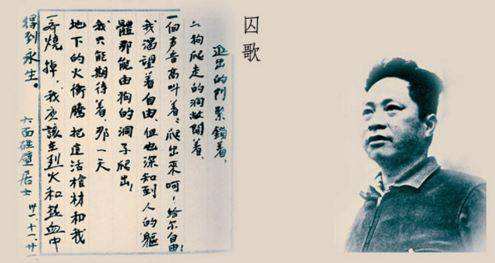 囚歌
進出的门紧锁着,
狗爬走的洞敞開着,
一個声音高叫着:爬出來呵!给尔自由!
我渴望着自由,但也深知到人的躯
體那能由狗的洞子爬出!
我只能期待着,那一天
地下的火衝腾把這活棺材和我
一齊燒掉,我应該在烈火和热血中
得到永生。
六面碰壁居士 卅一.十一.廿一